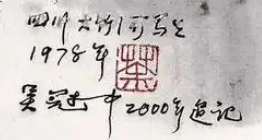 四川大竹河写生
1978年
荼
吴冠中 2000年追记